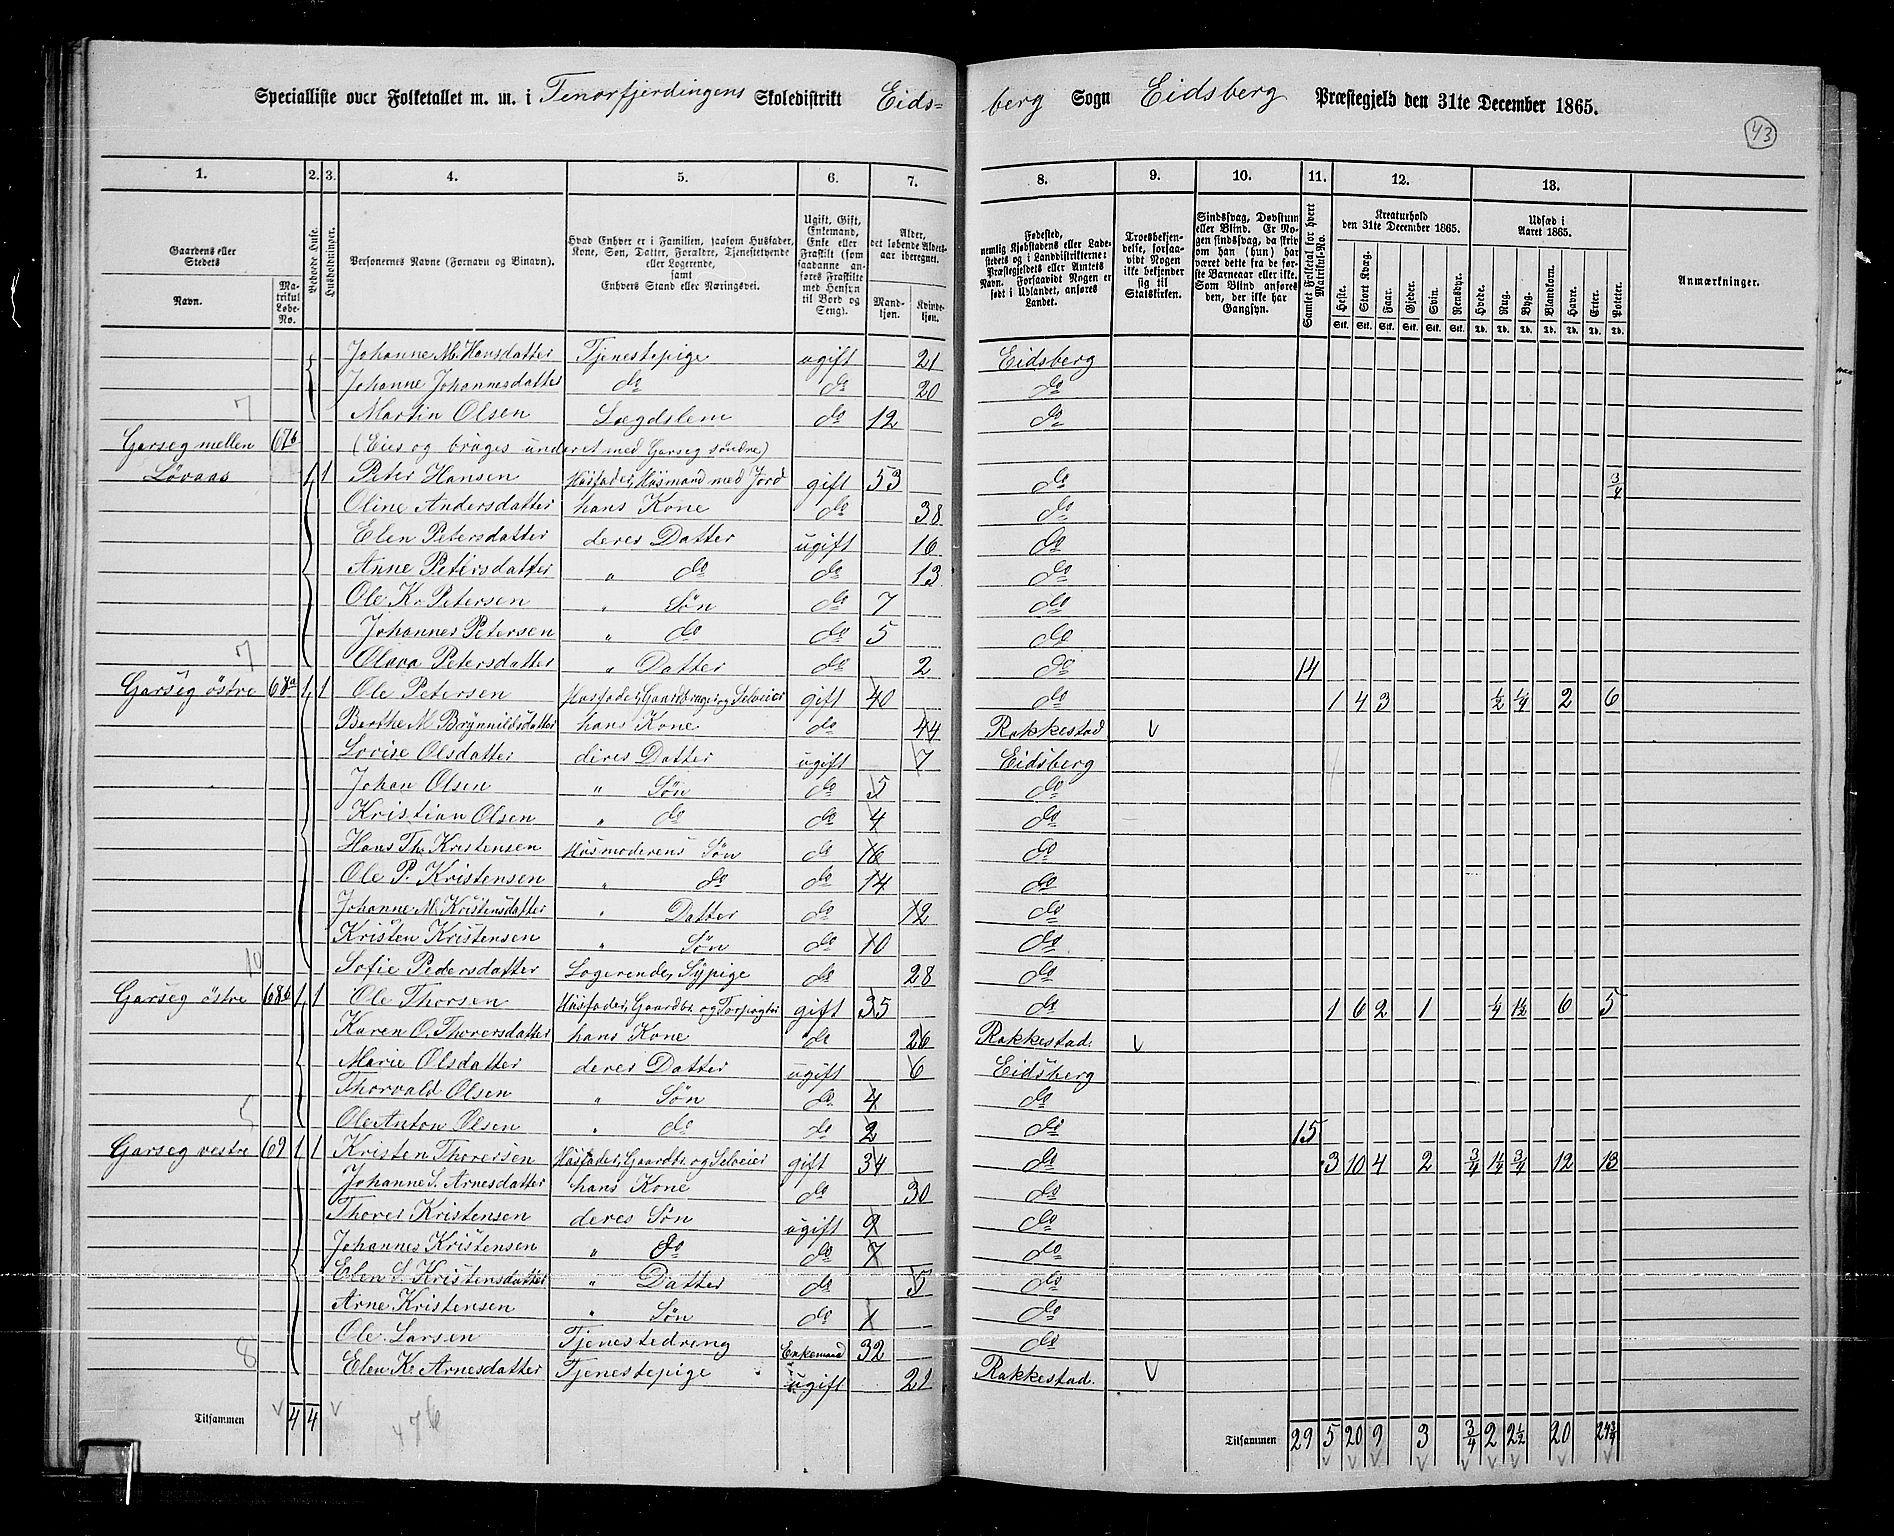 Specialliste over Folketallet m. m. i Tenorfjerdingens Skoledistrikt Eids=
berg Sogn Eidsberg Præstegjeld den 31te December 1865.
43
1. 2. 3. 4. 5. 6. 7. 8. 9. 10. 11. 12. 13.
Gaardens eller Stedets
Navn. Matrikul Løbe-No.
Beboede Huse.
Husholdninger.
Personernes Navne (Fornavn og Binavn).
Hvad Enhver er i Familien, saasom Husfader, Kone, Søn, Datter, Forældre, Tjenestetyende eller Logerende, samt Enhvers Stand eller Næringsvei.
Ugift, Gift, Enkemand, Enke eller Fraskilt (som saadanne anføres Fraskilte med Hensyn til Bord og Seng).
Alder, det løbende Aldersaar iberegnet.
Mandkjøn. Kvindekjøn.
Fødested, nemlig Kjøbstadens eller Ladestedets og i Landdistrikterne: Præstegjeldets eller Amtets Navn. Forsaavidt Nogen er født i Udlandet, anføres Landet.
Troesbekjendelse, forsaavidt Nogen ikke bekjender sig til Statskirken.
Sindssvag, Døvstum eller Blind. Er Nogen sindssvag, da skrives om han (hun) har været dette fra de første Barneaar eller ikke. Som Blind anføres den, der ikke har Gangsyn.
Samlet Folketal for hvert Matrikul-No.
Kreaturhold den 31te December 1865.
Heste. Stort Kvæg. Faar. Gjeder. Svin. Rensdyr.
Udsæd i Aaret 1865.
Hvede. Rug. Byg. Blandkorn. Havre. Erter. Poteter.
Anmærkninger.
Johanne M. Hansdatter Tjenestepige ugift 21 Eidsberg
Johanne Johannesdatter do do 20 do
7 Martin Olsen Lægdslem do 12 do
Garseg mellen 67b (Eies og bruges underet med Garseg søndre)
Løvaas 1 1 Peter Hansen Husfader, Husmand med Jord gift 53 do 3/4
Oline Andersdatter hans Kone do 38 do
Elen Petersdatter deres Datter ugift 16 do
Anne Petersdatter " do do 13 do
Ole Kr. Petersen " Søn do 7 do
Johannes Petersen " do do 5 do
7 Olava Petersdatter " Datter do 2 do 14
Garseg østre 68a 1 1 Ole Petersen Husfader, Gaardbruger og Selveier gift 40 do 1 4 3 1/2 1/4 2 6
Berthe M. Brynnildsdatter hans Kone do 44 Rakkestad v
Lovise Olsdatter deres Datter ugift 7 Eidsberg
Johan Olsen " Søn do 5 do
Kristian Olsen " do do 4 do
Hans Th. Kristensen Husmoderens Søn do 16 do
Ole P. Kristensen " do do 14 do
Johanne M. Kristensdatter " Datter do 12 do
Kristen Kristensen " Søn do 10 do
10 Sofie Pedersdatter Logerende, Sypige do 28 do
Garseg østre 68b 1 1 Ole Thorsen gift 35 do 1 6 2 1 1/4 1 1/2 6 5
Karen O. Thorersdatter hans Kone do 26 Rakkestad. v
Marie Olsdatter deres Datter ugift 6 Eidsberg
Thorvald Olsen " Søn do 4 do
5 Ole Anton Olsen " do do 2 do 15
Garseg vestre 69 1 1 Kristen Thorersen Husfader, Gaardbr. og Selveier gift 34 do 3 10 4 2 3/4 1 1/4 3/4 12 13
Johanne S. Arnesdatter hans Kone do 30 do
Thorer Kristensen deres Søn ugift 9 do
Johannes Kristensen " do do 7 do
Elen S. Kristensdatter " Datter do 5 do
Arne Kristensen " Søn do 1 do
Ole Larsen Tjenestedreng Enkemand 32 do
8 Elen K. Arnesdatter Tjenestepige ugift 21 Rakkestad. v
Tilsammen 4 4
Tilsammen 29 5 20 9 3 3/4 2 2 1/2 20 24 3/4